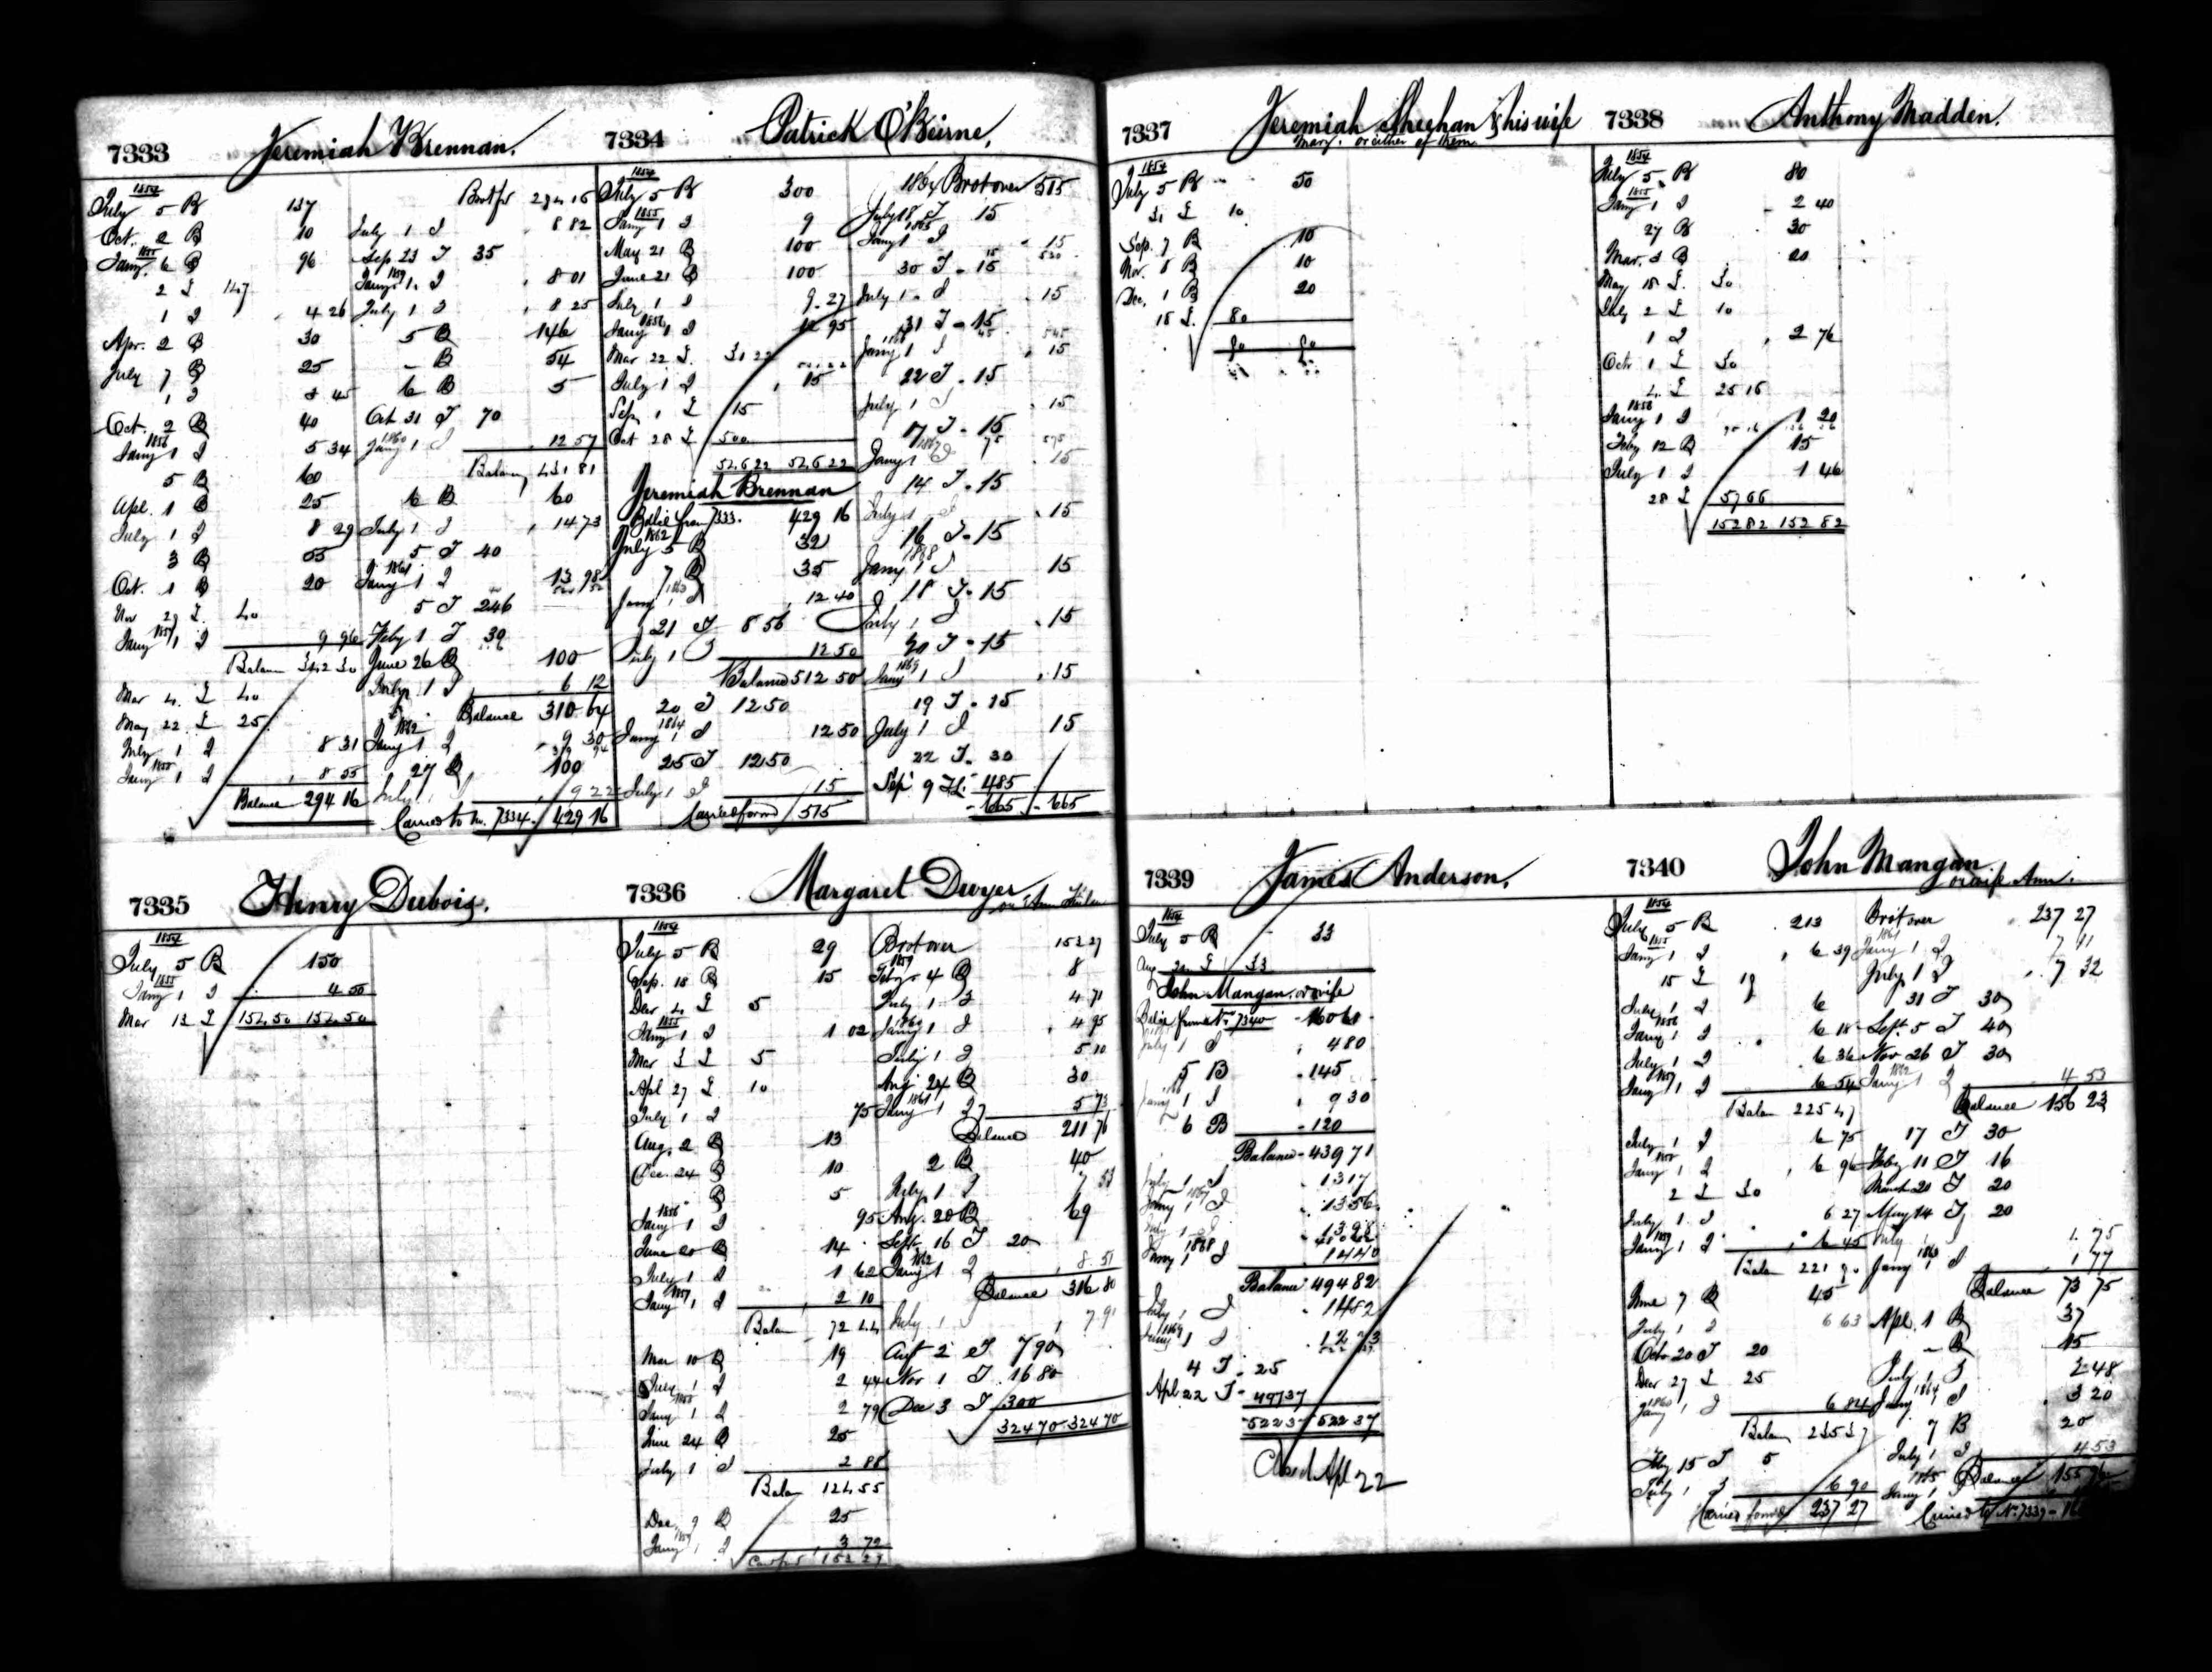 7333 Jeremiah Brennan.
1854
July 5 B 137
Oct. 2 B 10
1855
Jany. 6 B 96
2 I 147
1 I 4 26
Apr. 2 B 30
July 7 B 25
1 I
Oct. 2 B 40
1856
Jany 1 I 5 34
5 B 60
Apl. 1 B 25
July 1 I 8 29
3 B 55
Oct. 1 B 20
Nov 29 I 40
1857
Jany 1 I 9 96
Balan 342 30
Mar 4. I 40
May 22 I 25
July 1 I 8 31
1858
Jany 1 I 8 55
Balance 294 16
Brotfd 294 16
July 1 I 8 82
Sep 23 T 35
1859
Jany 1. I 8 01
July 1 I 8 25
5 B 146
- B 54
6 B 5
Oct 31 T 70
1860
Jany 1 I 12 57
Balance 431 81
6 B 60
July 1 I 14 73
5 T 40
1861
Jany 1 I 13 98
5 T 246
Feby 1 T 30
June 26 B 100
July 1 I 6 12
Balance 310 64
1862
Jany 1 I 9 30
27 B 100
July 1 I 9 22
Carried to No. 7334. 429 16
7334 Patrick O'Beirne.
1854
July 5 B 300
1855
Jany 1 I 9
May 21 B 100
June 21 B 100
July 1 I 9.27
1856
Jany 1 I 12 95
Mar 22 I. 31 22
July 1 I 15
Sep. 1 I 15
Oct 28 I 500
546 22 546 22
Jeremiah Brennan
Balce from 7333. 429 16
1862
July 5 B 32
7 B 35
1863
Jany 1 I 12 40
21 T 8 56
July 1 I 12 50
Balance 512 50
20 T 12 50
1864
Jany 1 I 12 50
25 T 12 50
July 1 I 15
Carried forwd 515
1864 Brot over 515
July 18 T 15
1865
Jany 1 I 15
30 T - 15
July 1 - I 15
31 T - 15
1866
Jany 1 I 15
22 T - 15
July 1 I 15
17 T - 15
1867
Jany 1 I 15
14 T - 15
July 1 I 15
16 T - 15
1868
Jany 1 I 15
18 T - 15
July 1 I 15
20 T - 15
1869
Jany 1 I 15
19 T - 15
July 1 I 15
22 T - 30
Sep 9 T 485
665 - 665
7335 Henry Dubois.
1854
July 5 B 150
1855
Jany 1 I 4 50
Mar 13 I 154 50 154 50
7336 Margaret Dwyer
1854
July 5 B 29
Sep. 18 B 15
Decr 4 I 5
1855
Jany 1 I 1 02
Mar 3 I 5
Apl 27 I 10
July 1 I 75
Aug. 2 B 13
Dec. 24 B 10
B 5
1856
Jany 1 I 95
June 20 B 14
July 1 I 1 62
1857
Jany 1 I 2 10
Balan 72 44
Mar 10 B 19
July 1 I 2 44
1858
Jany 1 I 2 79
June 24 B 25
July 1 I 2 88
Balan 124 55
Dec. 9 B 25
1859
Jany 1 I 3 72
Card fwd 153 27
Brot over 153 27
1859
Feby 4 B 8
July 1 I 4 71
1860
Jany 1 I 4 95
July 1 I 5 10
Aug 24 B 30
1861
Jany 1 I 5 73
Balance 211 76
2 B 40
July 1 I 7 53
Aug. 20 B 69
Sept. 16 T 20
1862
Jany 1 I 8 51
Balance 316 80
July 1 I 7 91
Augt 2 T 7 90
Nov 1 T 16 80
Dec 3 T 300
324 70 324 70
7337 Jeremiah Sheehan & his wife
Mary. or either of them
1854
July 5 B 50
31 I 10
Sep. 7 B 10
Nov. 8 B 10
Dec. 1 B 20
18 I. 80
90 90
7338 Anthony Madden.
1854
July 5. B 80
1855
Jany 1 I 2 40
27 B 30
Mar. 3 B 20
May 18 I. 30
July 2 I 10
1 I 2 76
Octr 1 I 30
4. I 25 16
1856
Jany 1 I 1 20
Feby 12 B 15
July 1 I 1 46
28 I 57 66
152 82 152 82
7339 James Anderson.
1854
July 5 B 33
Aug 24 I 33
John Mangan. or wife
Balce from No. 7340 160 61
July 1 I 4 80
5 B 145
Jany 1 I 9 30
6 B 120
Balance 439 71
July 1 I 13 17
1867
Jany 1 I 13 56
July 1 I 13 98
1868
Jany 1 I 14 40
Balance 494 82
July 1 I 14 82
1869
Jany 1 I 12 73
4 T - 25
Apl 22 T - 497 37
522 37 522 37
Closed Apl 22
7340 John Mangan
or wife Ann.
1854
July 5 B 213
1855
Jany 1 I 6 39
15 I 19
July 1 I 6
1856
Jany 1 I 6 18
July 1 I 6 36
1857
Jany 1 I 6 54
Balan 225 47
July 1 I 6 75
1858
Jany 1 I 6 96
2 I 30
July 1. I 6 27
1859
Jany 1 I 6 45
Balan 221 90
June 7 B 45
July 1 I 6 63
Octr 20 T 20
Decr 27 I 25
1860
Jany 1 I 6 84
Balan 235 37
May 15 T 5
July 1 I 6 90
Carried forwd 237 27
Brot over 237 27
1861
Jany 1 I 7 11
July 1 I 7 32
31 T 30
Sept. 5 T 40
Nov 26 T 30
1862
Jany 1 I 4 53
Balance 156 23
17 T 30
Feby 11 T 16
March 20 T 20
May 14 T 20
July 1. 75
1863
Jany 1 I 1 77
Balance 73 75
Apl. 1 B 37
- B 15
July 1 I 2 48
1864
Jany 1 I 3 20
7 B 20
July 1 I 4 53
Balance 155 96
1865
Jany 1 I
Carried to No. 7339